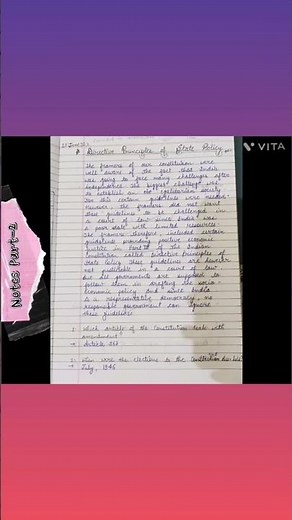 VITA
Directive Principles of State Policy
The framers of our constitution were
well aware of the fact that India
was going to face many challenges after
independence. The biggest challenge was
to establish an egalitarian society
For this certain guidelines were needed.
However, the framers did not want
these guidelines to be challenged in
a court of law since India was
a poor state with limited resources.
The framers therefore, included certain
guidelines providing positive economic
justice in Part IV of the Indian
Constitution called Directive Principles of
State Policy. These guidelines are
not justiciable in a court of law
but all governments are supposed to
follow them in drafting the socio
economic policy and since India
is a representative democracy, no
responsible government can ignore
these guidelines
Which article of the Constitution deals with
amendment
→ Article 368
When were the elections to the Constituent
→ July, 1946
Notes Part-2